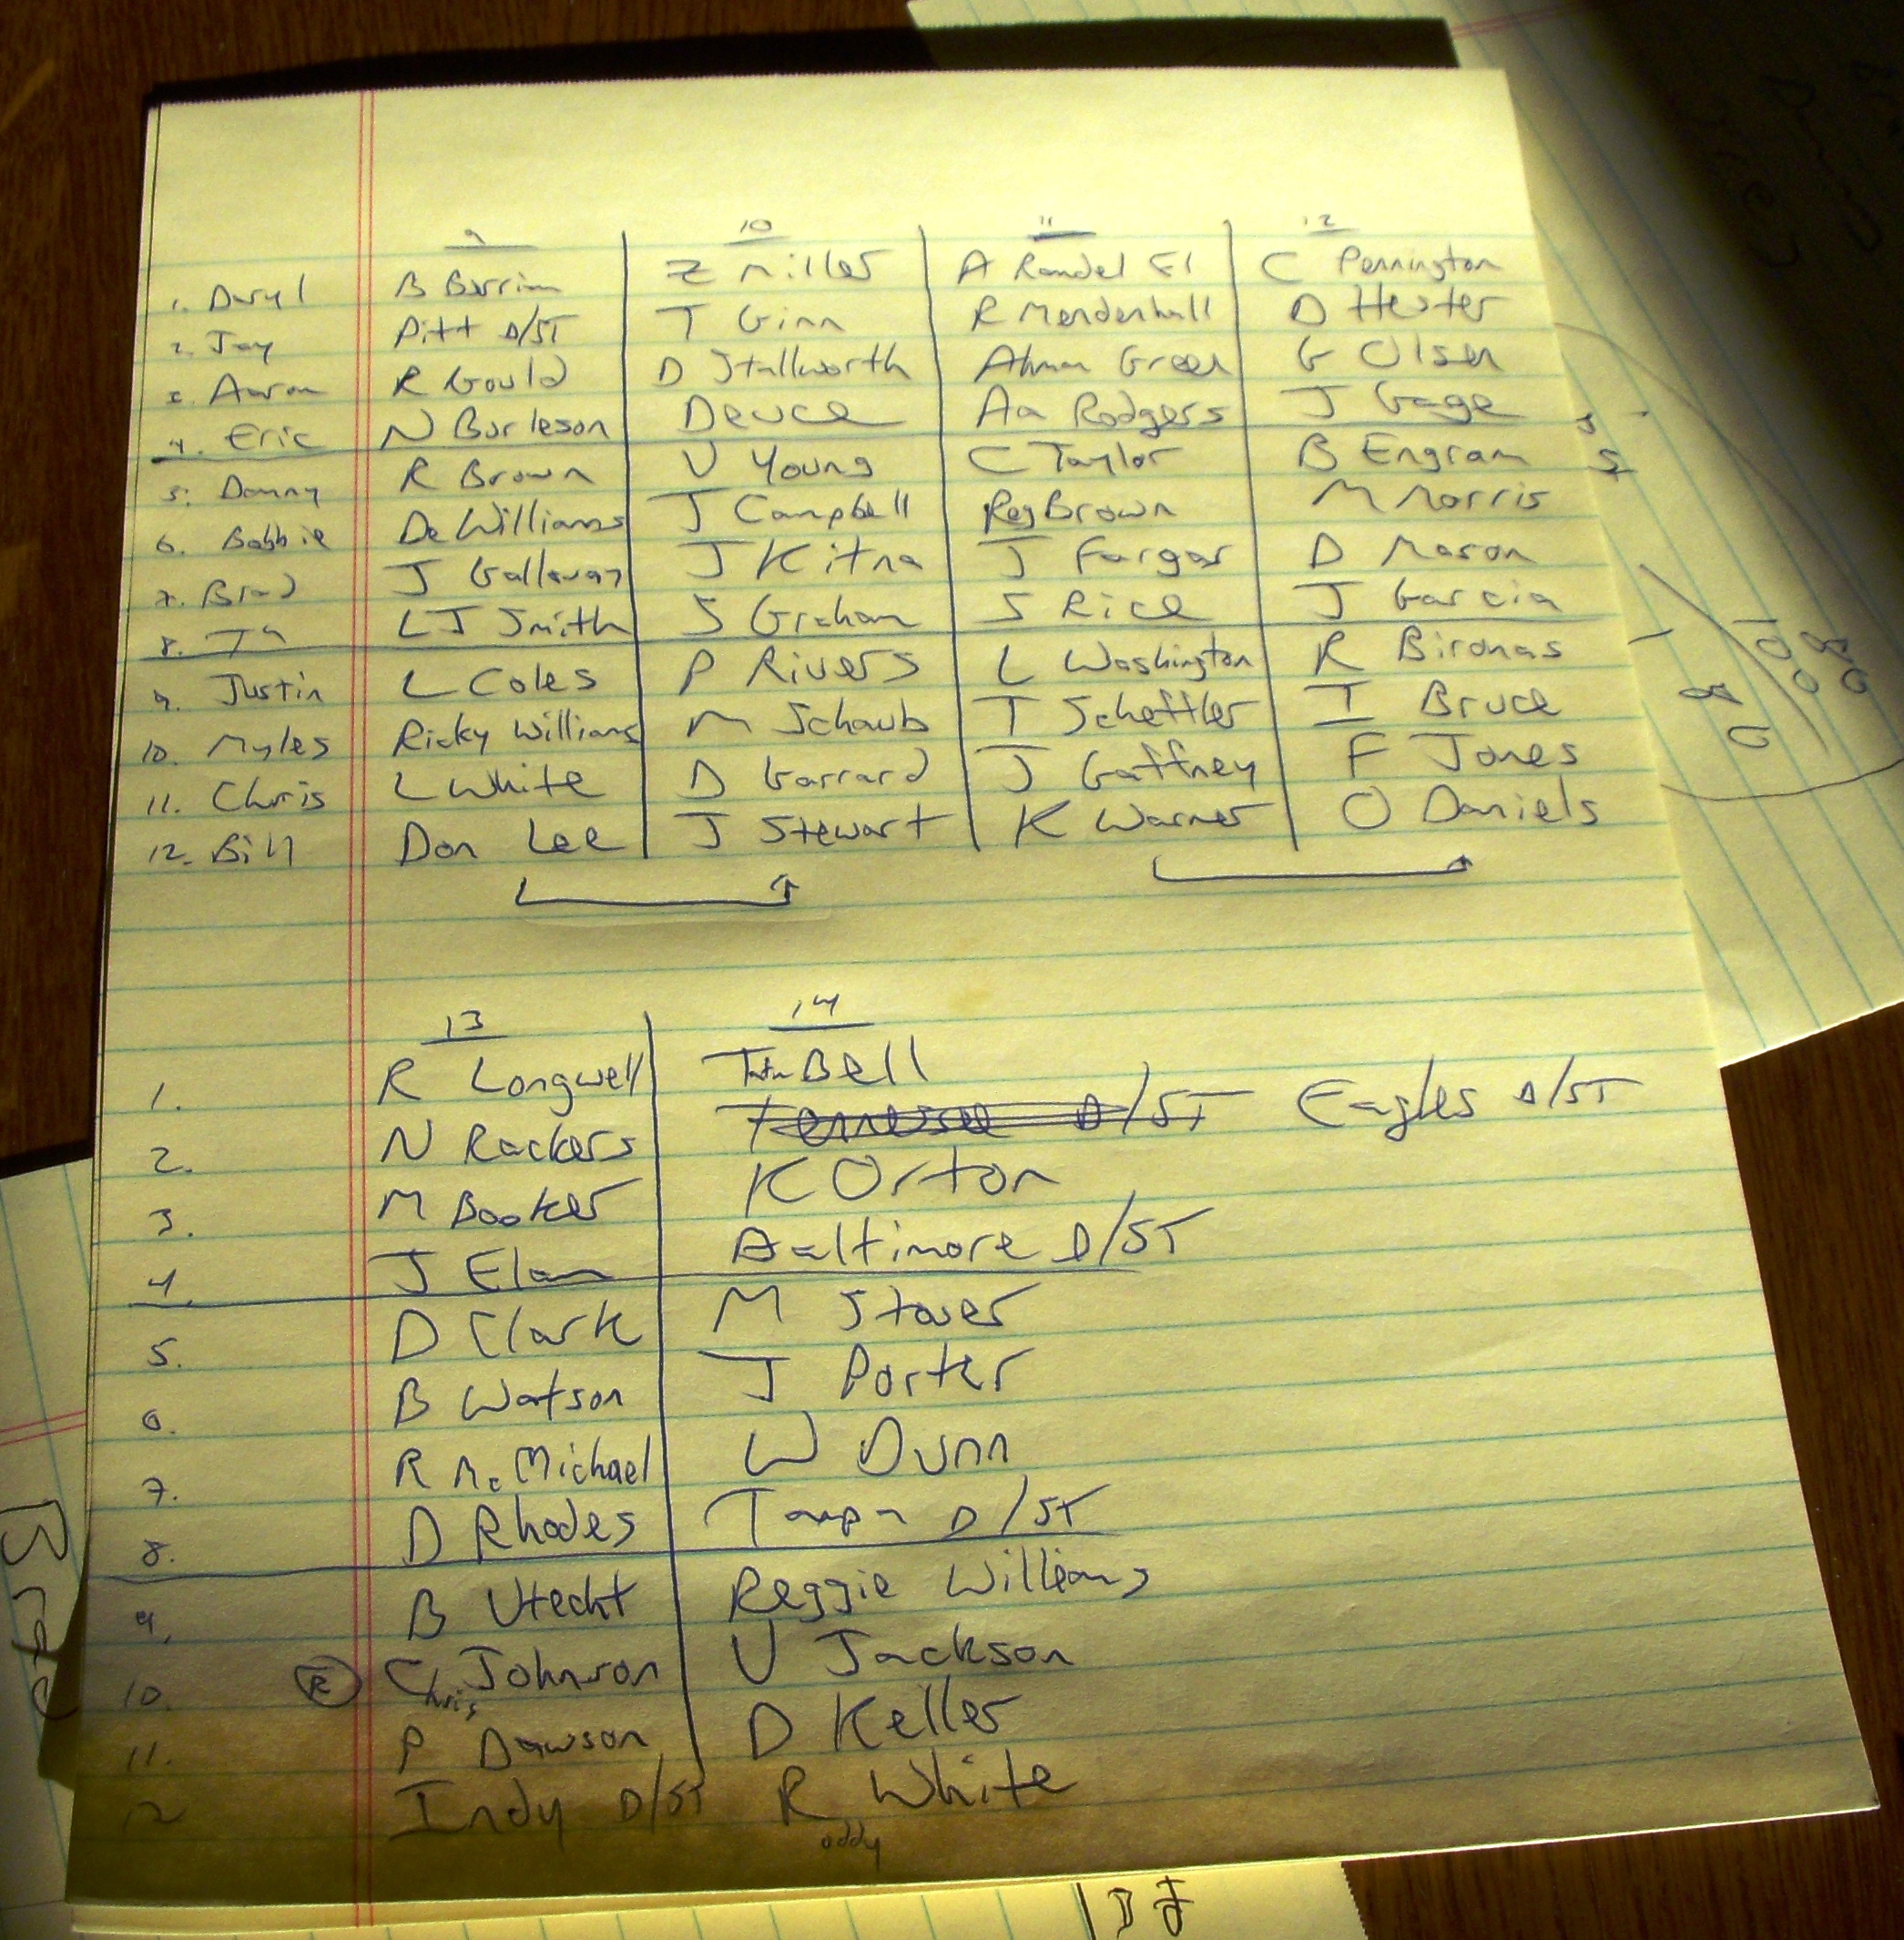 9 10 11 12
1. Daryl B Berrian Z Miller A Randel El C Pennington
2. Jay Pitt D/ST T Ginn R Mendenhall D Hester
3. Aaron R Gould D Stallworth Ahman Green G Olsen
4. Eric N Burleson Deuce Aa Rodgers J Gage
5. Danny R Brown V Young C Taylor B Engram
6. Bobbie De Williams J Campbell Reg Brown M Morris
7. Brad J Galloway J Kitna J Fargas D Mason
8. LJ Smith S Graham S Rice J Garcia
9. Justin L Coles P Rivers L Washington R Bironas
10. Myles Ricky Williams M Schaub T Scheffler I Bruce
11. Chris L White D Garrard J Gaffney F Jones
12. Bill Don Lee J Stewart K Warner O Daniels
13 14
1. R Longwell Tatum Bell
2. N Rackers Tennessee D/ST Eagles D/ST
3. M Booker K Orton
4. J Elam Baltimore D/ST
5. D Clark M Stover
6. B Watson J Porter
7. R McMichael W Dunn
8. D Rhodes Tampa D/ST
9. B Utecht Reggie Williams
10. R Chris Johnson V Jackson
11. P Dawson D Keller
12 Indy D/ST Roddy White
Brad
DJ